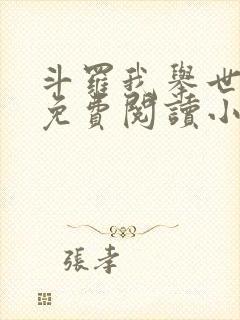 斗羅我舉世
免費閱讀小
張孝